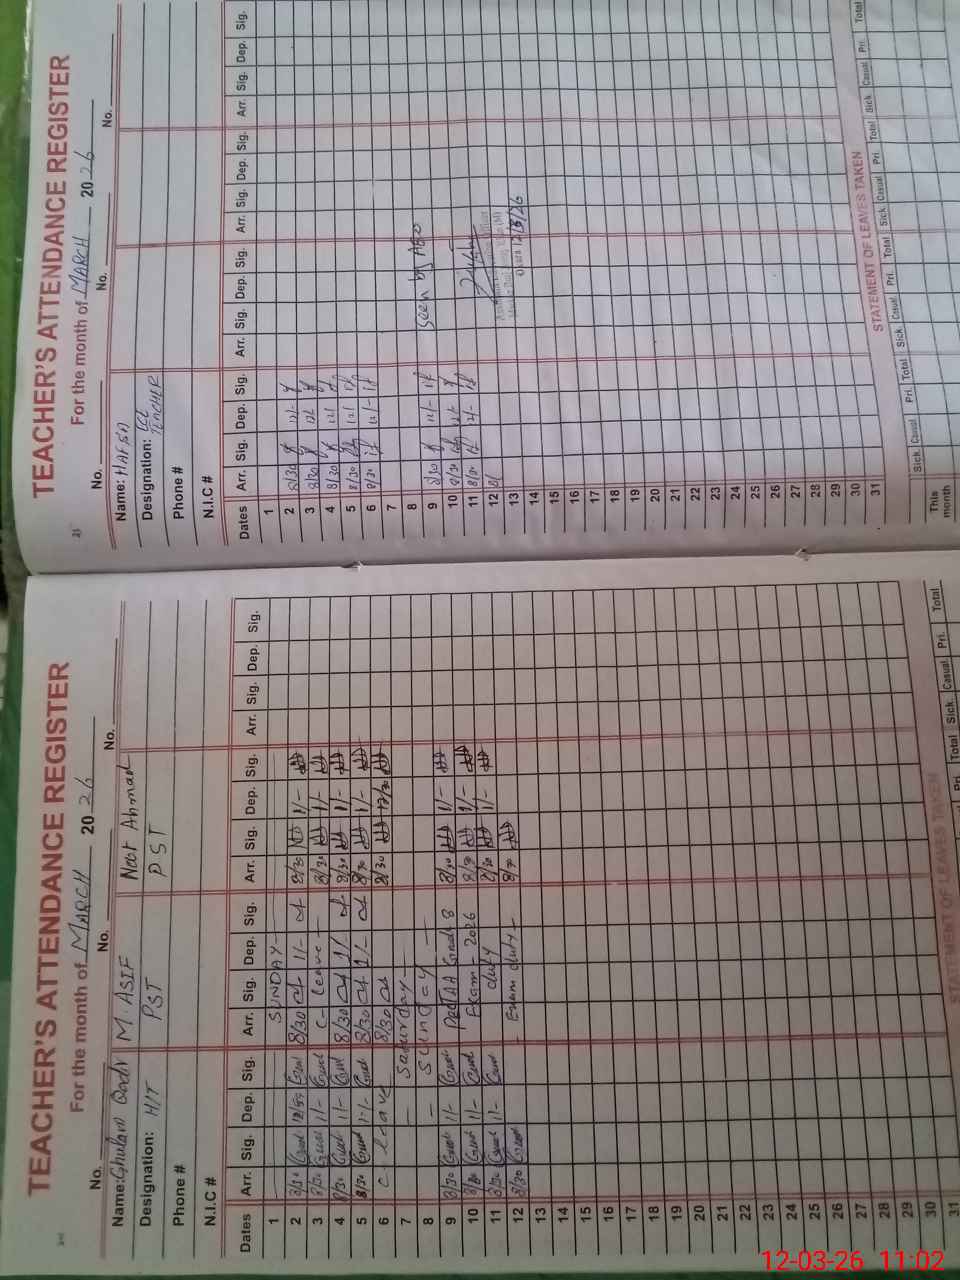 TEACHER'S ATTENDANCE REGISTER
For the month of MARCH 20 26
No. No. No.
Name: Ghulam Qadir M. ASIF Ahmad
Designation: H/T PST PST
Phone #
N.I.C #
Dates Arr. Sig. Dep. Sig. Arr. Sig. Dep. Sig. Arr. Sig. Dep. Sig. Arr. Sig. Dep. Sig.
1 SUNDAY
2 8/30 12/55 8/30 1/- 8/30 1/-
3 8/30 1/- C- leave 8/30 1/-
4 8/30 1/- 8/30 1/- 8/30 1/-
5 8/30 1/- 8/30 1/- 8/30 1/-
6 C- leave 8/30 8/30 12/30
7 — Saturday —
8 — Sunday —
9 8/30 1/- Grade 8 8/30 1/-
10 8/30 1/- Exam - 2026 8/30 1/-
11 8/30 1/- duty 8/30 1/-
12 8/30 Exam duty 8/30
13
14
15
16
17
18
19
20
21
22
23
24
25
26
27
28
29
30
31
STATEMENT OF LEAVES TAKEN
Pri. Total Sick. Casual Pri. Total
TEACHER'S ATTENDANCE REGISTER
For the month of MARCH 20 26
No. No. No.
Name:
Designation: TEACHER
Phone #
N.I.C #
Dates Arr. Sig. Dep. Sig. Arr. Sig. Dep. Sig. Arr. Sig. Dep. Sig. Arr. Sig. Dep. Sig.
1
2 8/30 12/-
3 8/30 12/
4 8/30 12/
5 8/30 12/
6 8/30 12/-
7
8 Seen by AEO
9 8/30 12/-
10 8/30 12/-
11 8/30 12/-
12 8/
13 Okara 12/3/26
14
15
16
17
18
19
20
21
22
23
24
25
26
27
28
29
30
31
STATEMENT OF LEAVES TAKEN
Sick. Casual Pri. Total Sick. Casual Pri. Total Sick. Casual Pri. Total Sick. Casual Pri. Total
This month
12-03-26 11:02